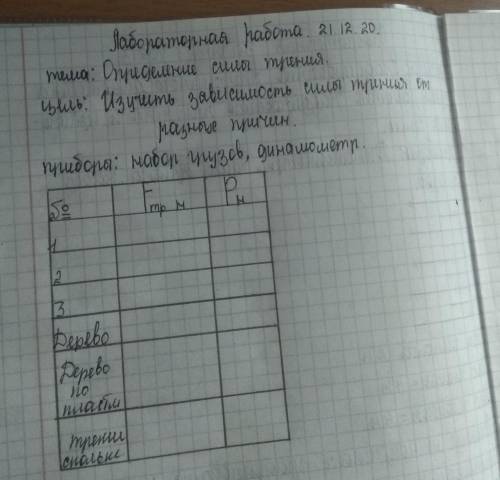 Лабораторная работа. 21.12.20.
тема: Опридемние силы трения.
цель: Изучить зависимость силы трения от
разные причин.
приборы: набор грузов, динамометр.
№ Fтр н Р н
1
2
3
Дерево
Дерево
по
пластм
трени
скольже